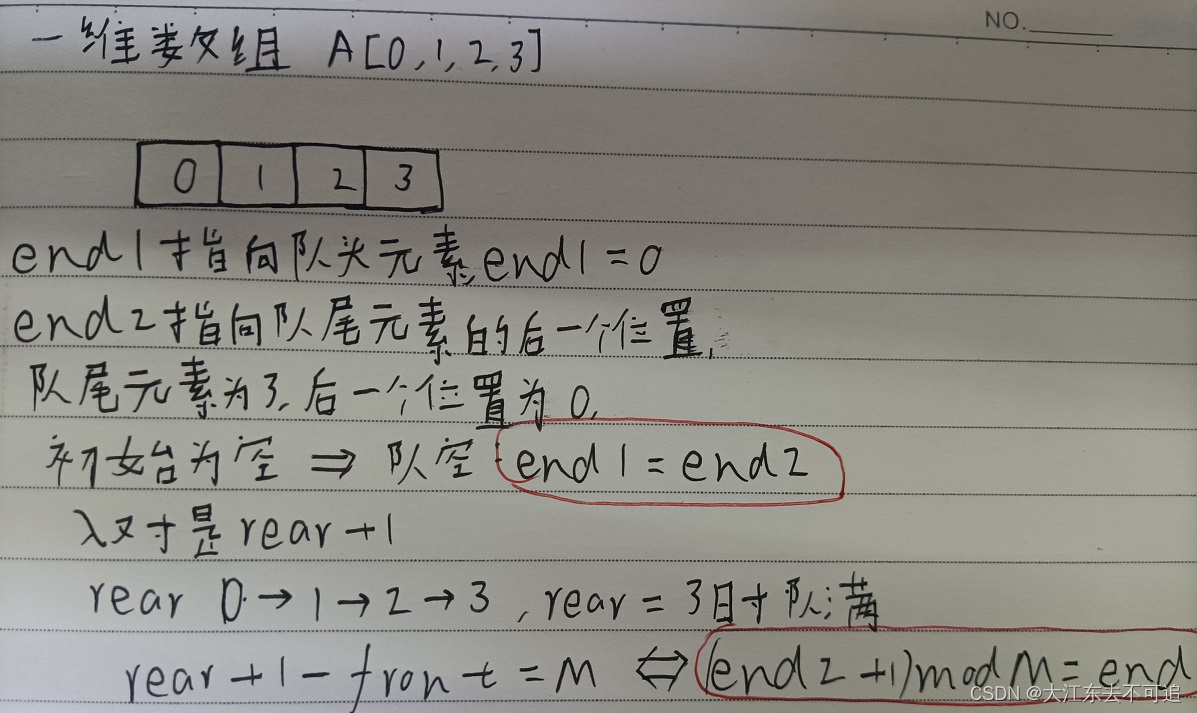 NO.
一维数组 A[0,1,2,3]
0 1 2 3
end1指向队头元素,end1=0
end2指向队尾元素的后一个位置,
队尾元素为3,后一个位置为0,
初始为空 ⇒ 队空 end1=end2
入对是rear+1
rear 0→1→2→3,rear=3时队满
rear+1-front=M ⇔ (end2+1)mod M=end
CSDN @大江东去不可追